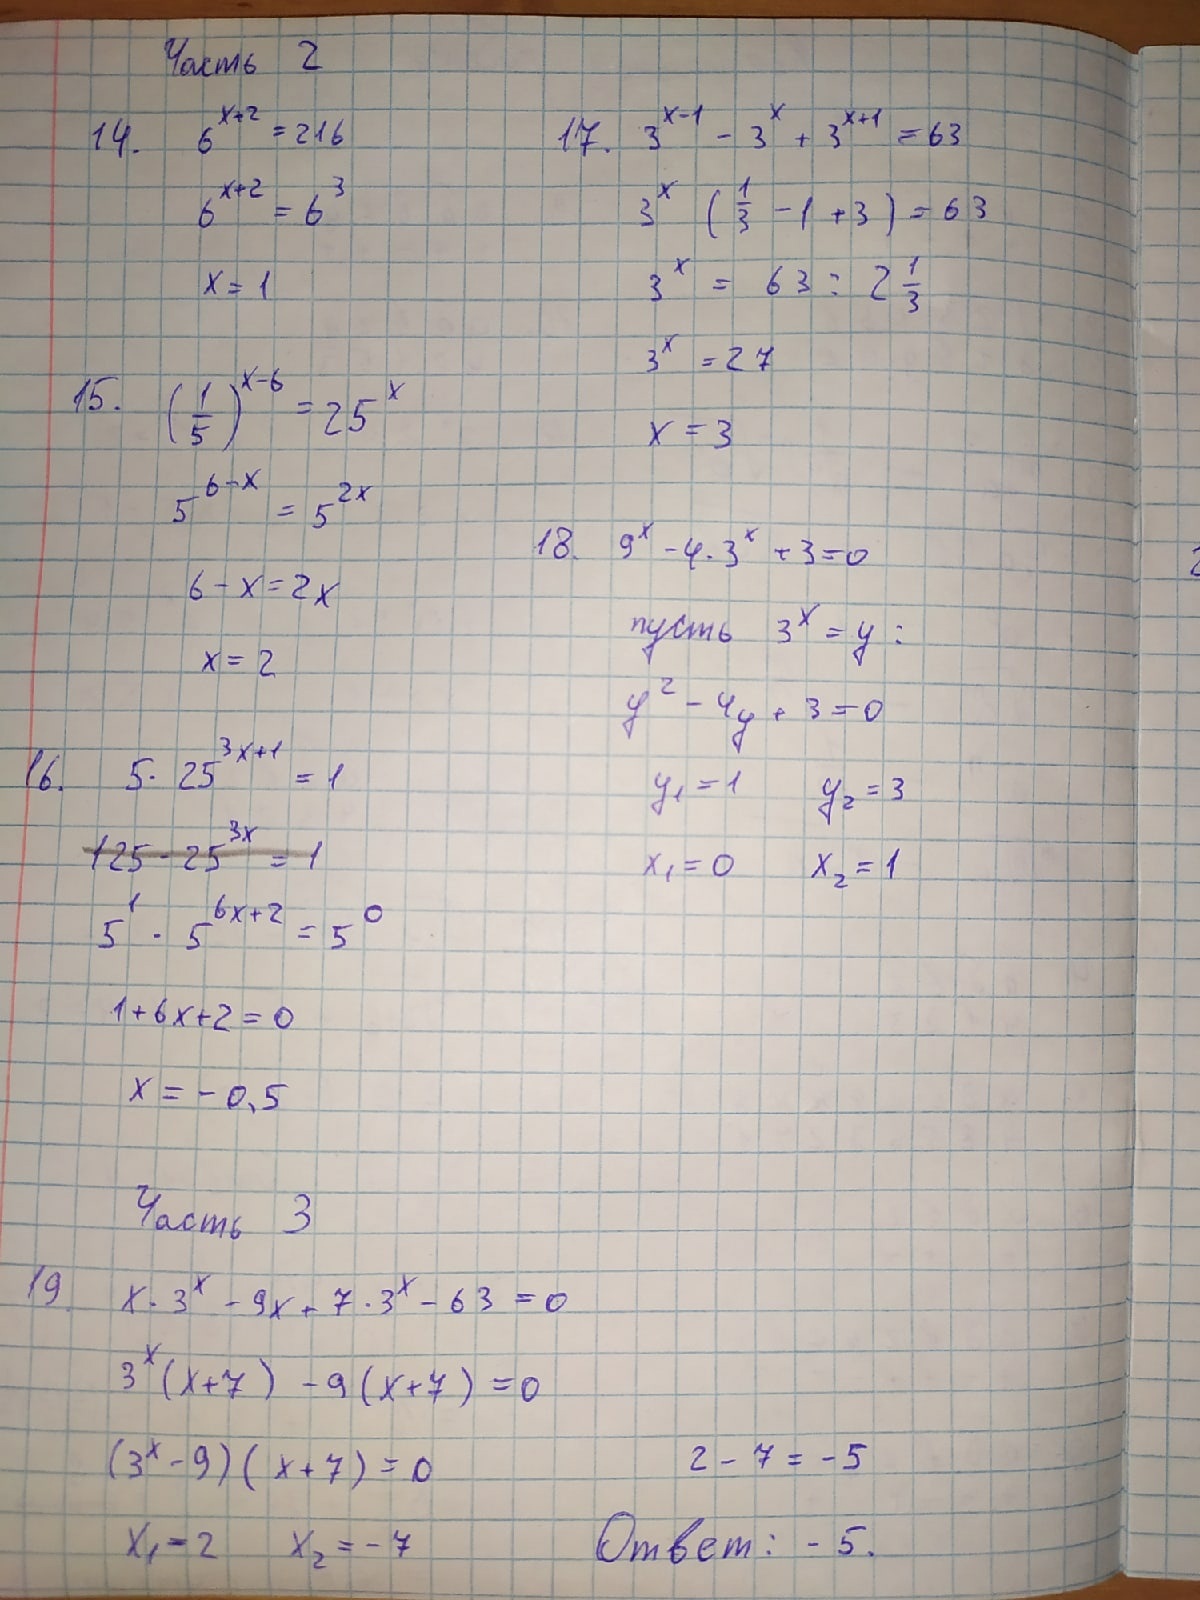 Часть 2
14. 6^{x+2} = 216
6^{x+2} = 6^3
x = 1
15. (1/5)^{x-6} = 25^x
5^{6-x} = 5^{2x}
6 - x = 2x
x = 2
16. 5 · 25^{3x+1} = 1
125 · 25^{3x} = 1
5^1 · 5^{6x+2} = 5^0
1 + 6x + 2 = 0
x = -0,5
17. 3^{x-1} - 3^x + 3^{x+1} = 63
3^x (1/3 - 1 + 3) = 63
3^x = 63 : 2 1/3
3^x = 27
x = 3
18. 9^x - 4 · 3^x + 3 = 0
пусть 3^x = y :
y^2 - 4y + 3 = 0
y_1 = 1 y_2 = 3
x_1 = 0 x_2 = 1
Часть 3
19 x · 3^x - 9x + 7 · 3^x - 63 = 0
3^x (x+7) - 9 (x+7) = 0
(3^x - 9) (x+7) = 0
x_1 = 2 x_2 = -7
2 - 7 = -5
Ответ: -5.